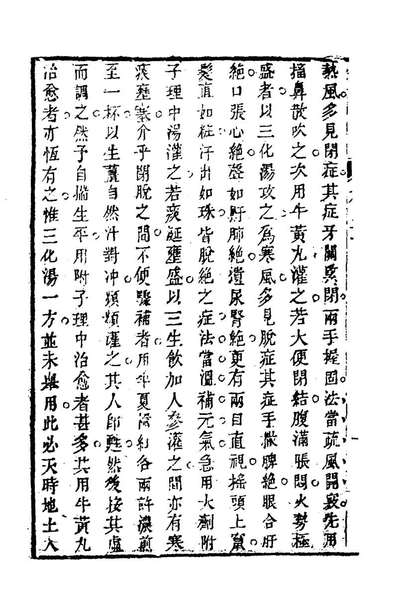 熱風多見閉症其症牙關緊閉兩手握固法當疏風開竅先用
搐鼻散吹之次用牛黃丸灌之若大便閉結腹滿脹悶火勢極
盛者以三化湯攻之為寒風多見脫症其症手撒脾絕眼合肝
絕口張心絕聲如鼾肺絕遺尿腎絕更有兩目直視搖頭上竄
髮直如粧汗出如珠皆脫絕之症法當溫補元氣急用大劑附
子理中湯灌之若痰涎壅盛以三生飲加人參灌之間亦有寒
痰壅塞介乎閉脫之間不便驟補者用半夏橘紅各兩許濃煎
至一杯以生薑自然汁對冲頻頻灌之其人即甦然後按其虛
而調之然予自揣生平用附子理中治愈者甚多其用牛黃丸
治愈者亦恆有之惟三化湯一方並未舉用此必天時地土人